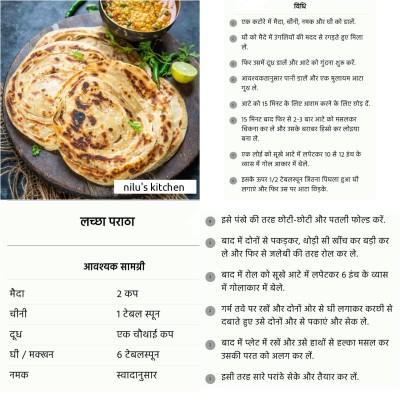 nilu's kitchen
विधि
एक कटोरे में मैदा, चीनी, नमक और घी को डालें.
घी को मैदे में उंगलियों की मदद से रगड़ते हुए मिला
लें.
फिर उसमें दूध डालें और आटे को गुंदना शुरू करें.
आवश्यकतानुसार पानी डालें और एक मुलायम आटा
गूथ ले.
आटे को 15 मिनट के लिए आराम करने के लिए छोड़ दें.
15 मिनट बाद फिर से 2-3 बार आटे को मसलकर
चिकना कर ले और उसके बराबर हिस्से कर लोइया
बना ले.
एक लोई को सूखे आटे में लपेटकर 10 से 12 इंच के
व्यास में गोल आकार में बेले.
इसके ऊपर 1/2 टेबलस्पून जितना पिघला हुआ घी
लगाएं और फिर उस पर आटा छिड़के.
लच्छा पराठा
आवश्यक सामग्री
मैदा 2 कप
चीनी 1 टेबल स्पून
दूध एक चौथाई कप
घी / मक्खन 6 टेबलस्पून
नमक स्वादानुसार
इसे पंखे की तरह छोटी-छोटी और पतली फोल्ड करें.
बाद में दोनों से पकड़कर, थोड़ी सी खींच कर बड़ी कर
ले और फिर से जलेबी की तरह रोल कर ले.
बाद में रोल को सूखे आटे में लपेटकर 6 इंच के व्यास
में गोलाकार में बेले.
गर्म तवे पर रखें और दोनों ओर से घी लगाकर करछी से
दबाते हुए उसे दोनों और से पकाएं और सेक ले.
बाद में प्लेट में रखें और उसे हाथों से हल्का मसल कर
उसकी परत को अलग कर लें.
इसी तरह सारे परांठे सेके और तैयार कर लें.